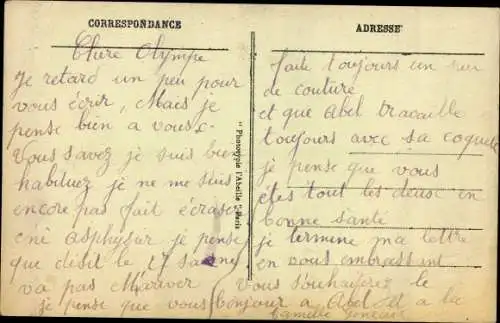 CORRESPONDANCE
Chère Olympe
Je retard un peu pour
vous écrir, Mais je
pense bien a vous
Vous savez je suis bien
habituez je ne me suis
encore pas fait écraser
e ni asphysier je pense
que désit le 17
va pas M'arriver
je pense que vous
"Phototypie l'Abeille", Paris
ADRESSE
faite toujours un
de couture
et que Abel travaille
toujours avec sa
je pense que vous
êtes tout les deux en
bonne santé
je termine ma lettre
en vous embrassent
Vous Souhaiterez le
bonjour a Abel et a la
famille